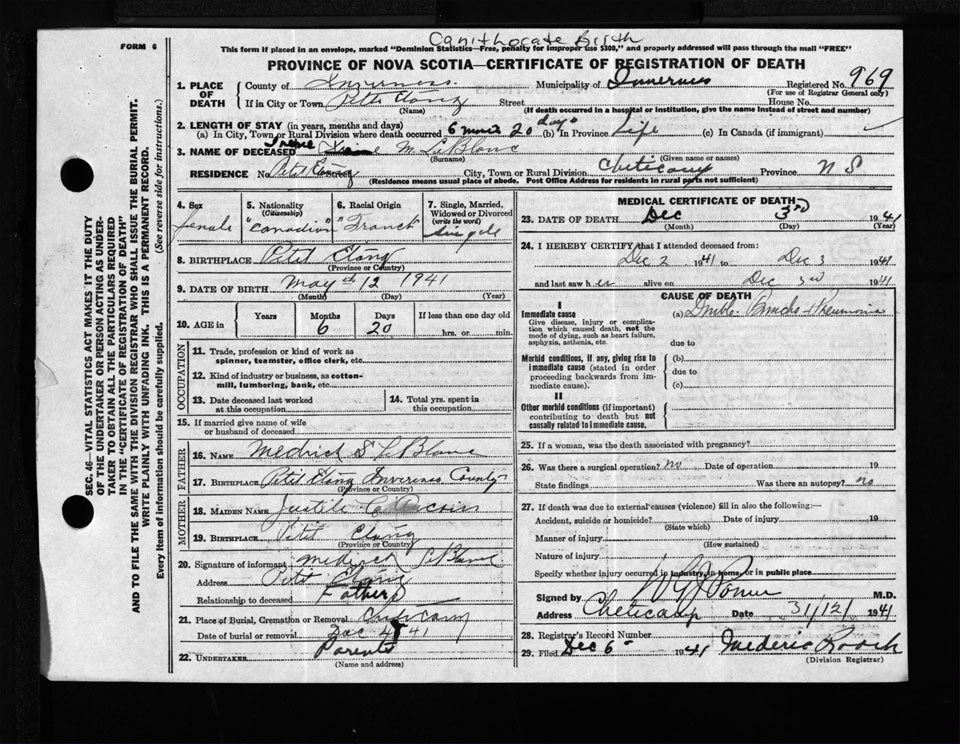 Birth
FORM 6
This form if placed in an envelope, marked "Dominion Statistics—Free, penalty for improper use $300," and properly addressed will pass through the mail "FREE"
PROVINCE OF NOVA SCOTIA—CERTIFICATE OF REGISTRATION OF DEATH
SEC. 46—VITAL STATISTICS ACT MAKES IT THE DUTY
OF THE UNDERTAKER OR PERSON ACTING AS UNDER-
TAKER TO OBTAIN ALL THE PARTICULARS REQUIRED
IN THE "CERTIFICATE OF REGISTRATION OF DEATH"
AND TO FILE THE SAME WITH THE DIVISION REGISTRAR WHO SHALL ISSUE THE BURIAL PERMIT.
WRITE PLAINLY WITH UNFADING INK. THIS IS A PERMANENT RECORD.
Every Item of Information should be carefully supplied. (See reverse side for instructions.)
1. PLACE OF DEATH County of Inverness Municipality of Inverness Registered No. 969
(For use of Registrar General only)
If in City or Town Petit Etang Street House No.
(Name) (If death occurred in a hospital or institution, give the name instead of street and number)
2. LENGTH OF STAY (in years, months and days)
(a) In City, Town or Rural Division where death occurred 6 mons 20 days (b) In Province Life (c) In Canada (if immigrant)
3. NAME OF DECEASED Irene M. LeBlanc
(Surname) (Given name or names)
RESIDENCE No. Petit Etang Street City, Town or Rural Division Cheticamp Province N S
(Residence means usual place of abode. Post Office Address for residents in rural parts not sufficient)
4. Sex female
5. Nationality (Citizenship) Canadian
6. Racial Origin French
7. Single, Married, Widowed or Divorced (write the word) Single
8. BIRTHPLACE Petit Etang
(Province or Country)
9. DATE OF BIRTH May 12 1941
(Month) (Day) (Year)
10. AGE in Years Months 6 Days 20 If less than one day old hrs. or min.
OCCUPATION
11. Trade, profession or kind of work as spinner, teamster, office clerk, etc.
12. Kind of industry or business, as cotton-mill, lumbering, bank, etc.
13. Date deceased last worked at this occupation
14. Total yrs. spent in this occupation
15. If married give name of wife or husband of deceased
FATHER
16. NAME Medrick S LeBlanc
17. BIRTHPLACE Petit Etang Inverness County
(Province or Country)
MOTHER
18. MAIDEN NAME Aucoin
19. BIRTHPLACE Petit Etang
(Province or Country)
20. Signature of informant Medrick LeBlanc
Address Petit Etang
Relationship to deceased Father
21. Place of Burial, Cremation or Removal Cheticamp
Date of burial or removal Dec 4 41
22. UNDERTAKER Parents
(Name and address)
MEDICAL CERTIFICATE OF DEATH
23. DATE OF DEATH Dec 3rd 1941
(Month) (Day) (Year)
24. I HEREBY CERTIFY that I attended deceased from:
Dec 2 1941 to Dec 3 1941
and last saw her alive on Dec 3rd 1941
CAUSE OF DEATH
I
Immediate cause
Give disease, injury or complication which caused death, not the mode of dying, such as heart failure, asphyxia, asthenia, etc.
(a) Double Broncho Pneumonia
due to
Morbid conditions, if any, giving rise to immediate cause (stated in order proceeding backwards from immediate cause).
(b)
due to
(c)
II
Other morbid conditions (if important) contributing to death but not causally related to immediate cause.
25. If a woman, was the death associated with pregnancy?
26. Was there a surgical operation? no Date of operation 19
State findings Was there an autopsy? no
27. If death was due to external causes (violence) fill in also the following:—
Accident, suicide or homicide? Date of injury 19
(State which)
Manner of injury
(How sustained)
Nature of injury
Specify whether injury occurred in industry, in home, or in public place
Signed by M.D.
Address Cheticamp Date 31/12/1941
28. Registrar's Record Number
29. Filed Dec 6 1941 Mederic Roach
(Division Registrar)